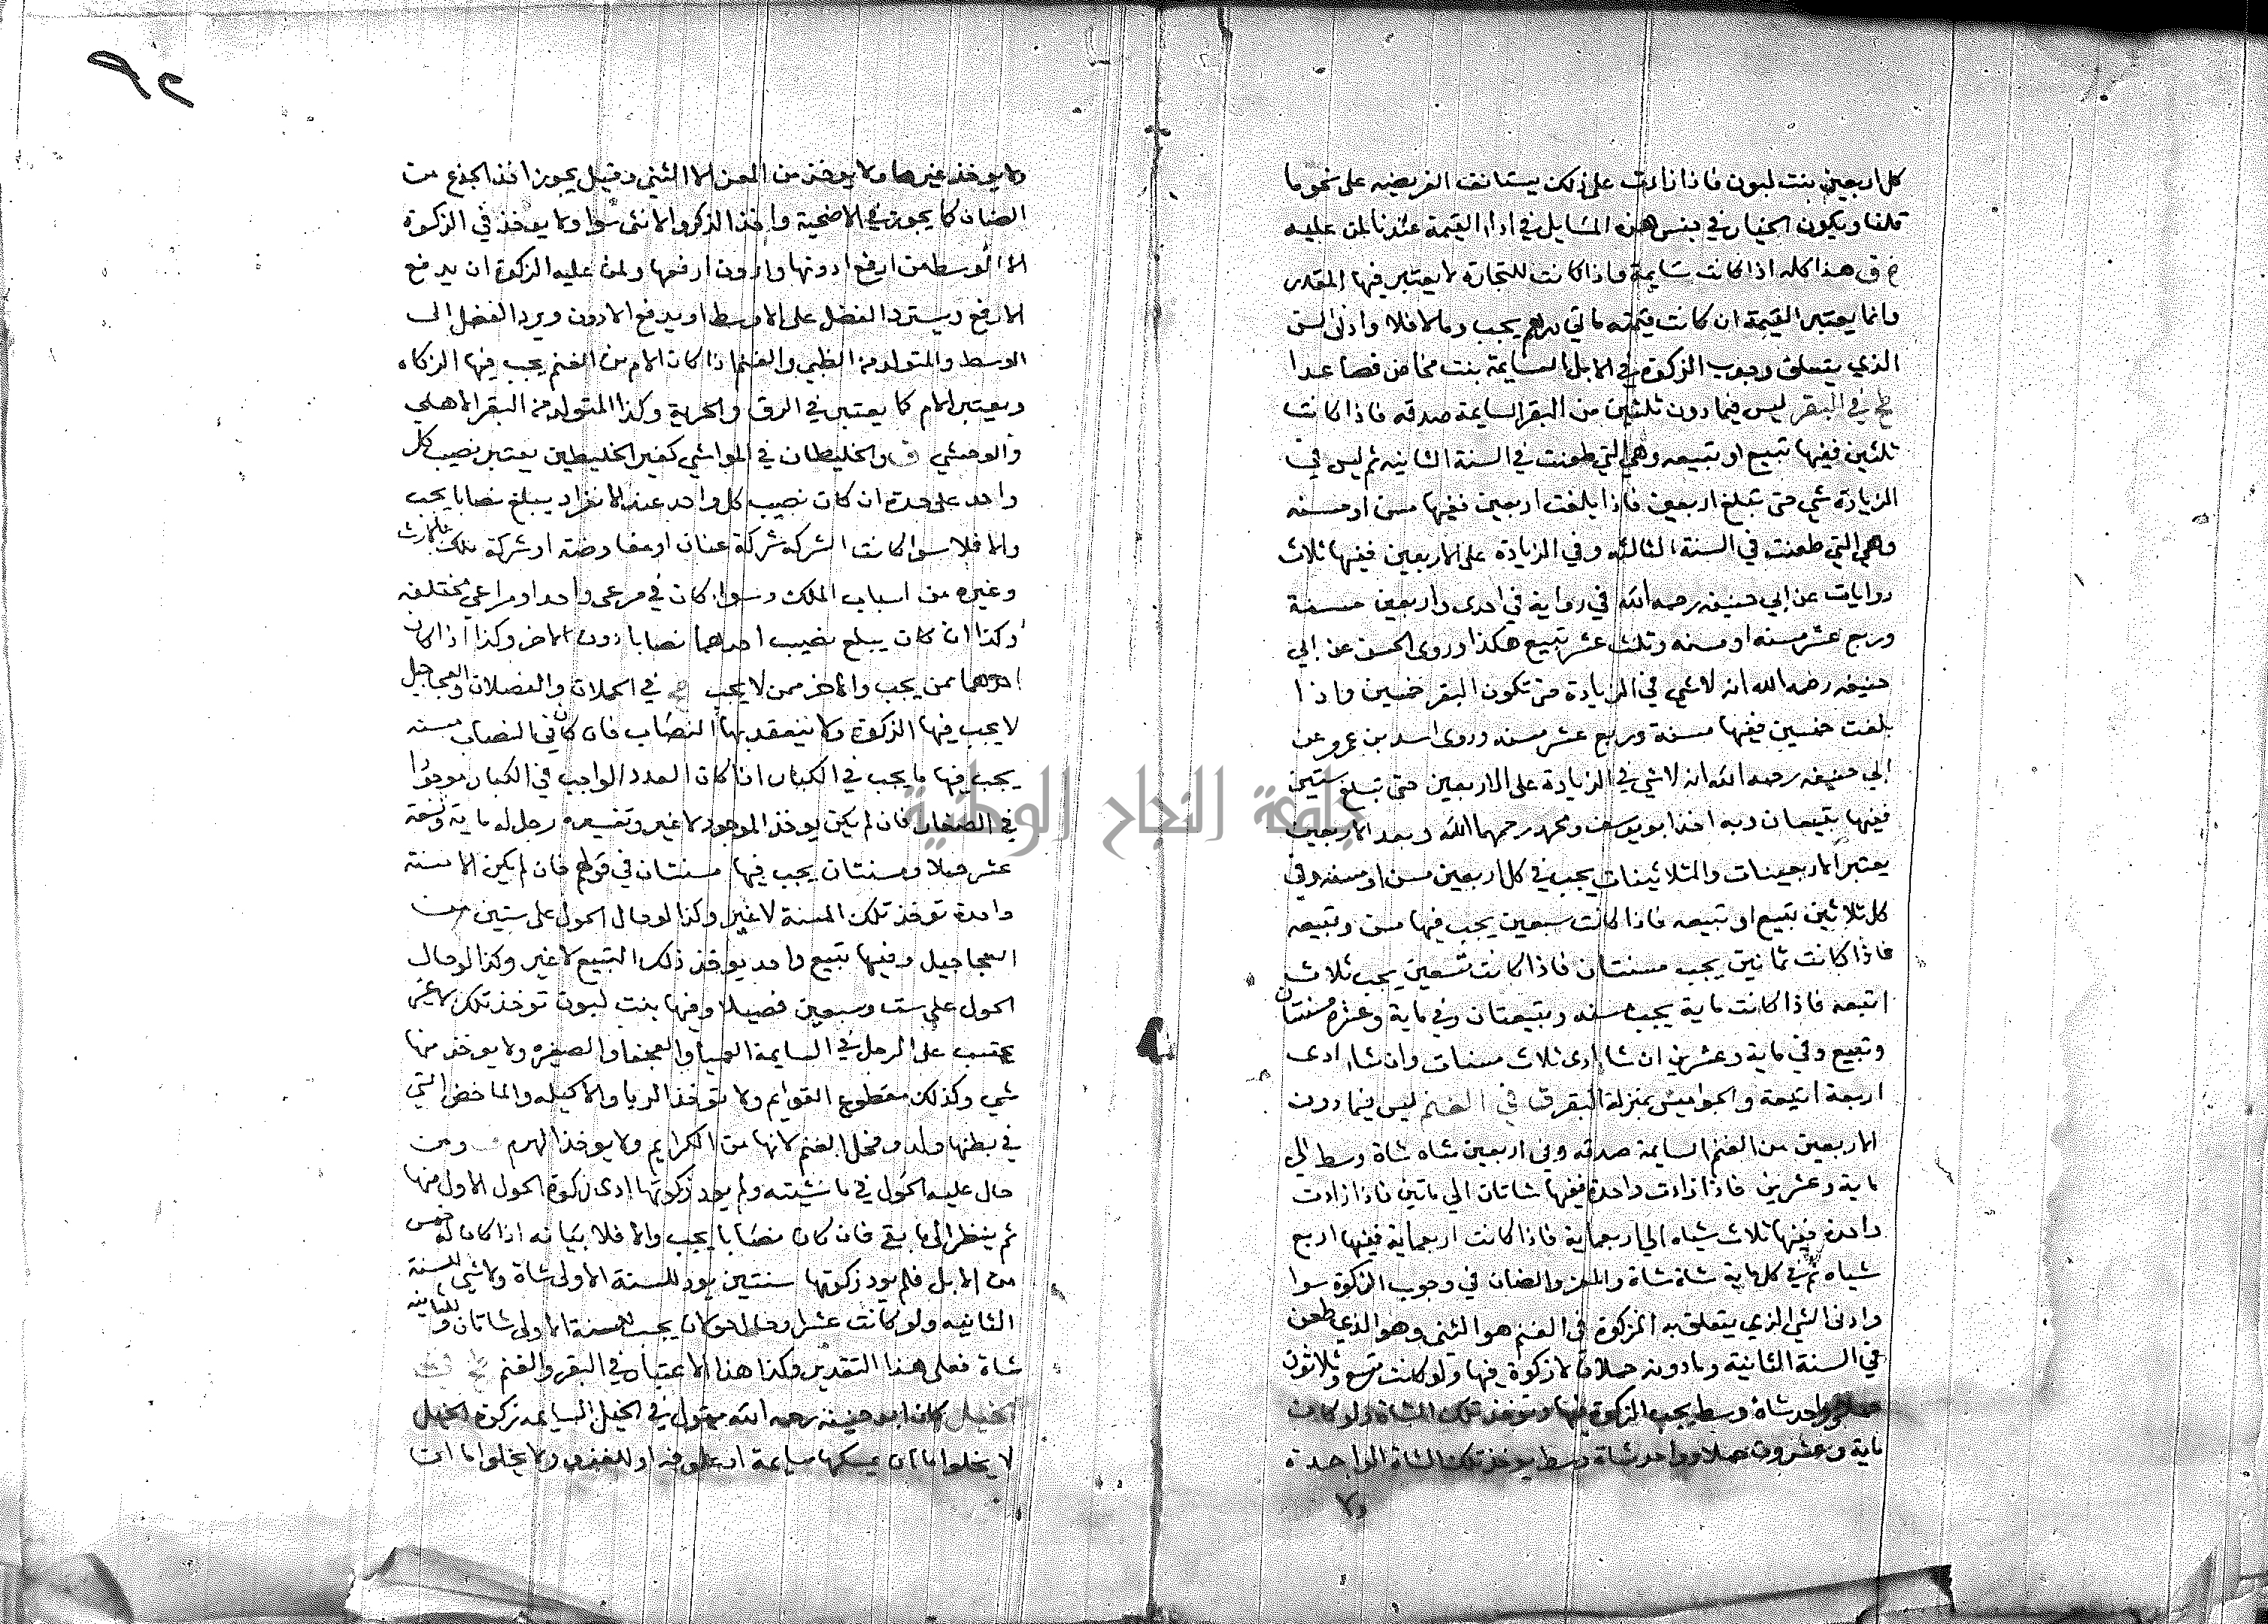 كل اربعين بنت لبون فاذا زادت على ذلك يستانف الفريضه على نحو ما
قلنا ويكون الخيار في جنس هذه المسايل في اداء القيمة عندنا لمن عليه
هذا كله اذا كانت سايمة فاذا كانت للتجارة لا يعتبر فيها المقدر
وانما يعتبر القيمة ان كانت قيمته مائي درهم يجب ومالا فلا وادنى السن
الذي يتعلق وجوب الزكوة في الابل السايمة بنت مخاض فصاعدا
في البقر ليس فيما دون ثلثين من البقر السايمة صدقه فاذا كانت
ثلثين ففيها تبيع او تبيعه وهي التي طعنت في السنة الثانيه ثم ليس في
الزيادة شي حتى تبلغ اربعين فاذا بلغت اربعين ففيها مسن او مسنه
وهي التي طعنت في السنة الثالثه وفي الزيادة على الاربعين ففيها ثلاث
روايات عن ابي حنيفه رحمه الله في رواية في احدى واربعين مسنة
وربع عشر مسنه او مسنه وثلث عشر تبيع هكذا وروى الحسن عن ابي
حنيفه رحمه الله انه لاشي في الزيادة حتى تكون البقر خمسين فاذا
بلغت خمسين ففيها مسنة وربع عشر مسنه وروى اسد بن عمرو عن
ابي حنيفه رحمه الله انه لاشي في الزيادة على الاربعين حتى تبلغ ستين
ففيها تبيعان وبه اخذ ابو يوسف ومحمد رحمهما الله وبعد الاربعين
يعتبر الاربعينات والثلاثينات يجب في كل اربعين مسن او مسنه وفي
كل ثلاثين تبيع او تبيعه فاذا كانت سبعين يجب فيها مسن وتبيعه
فاذا كانت ثمانين يجب مسنتان فاذا كانت تسعين يجب ثلاث
اتبعه فاذا كانت ماية يجب مسنه وتبيعتان وفي ماية وعشره مسنتان
وتبيع وفي ماية وعشرين ان شا ادى ثلاث مسنات وان شا ادى
اربعة اتبعة والجواميس بمنزلة البقر في الغنم ليس فيما دون
الاربعين من الغنم السايمة صدقه وفي اربعين شاه شاة وسط الي
ماية وعشرين فاذا زادت واحدة ففيها شاتان الي ماتين فاذا زادت
واحدة ففيها ثلاث شياه الي اربعماية فاذا كانت اربعماية ففيها اربع
شياه ثم في كل ماية شاة شاة والمعز والضان في وجوب الزكوة سوا
وادنى السن الذي يتعلق به الزكوة في الغنم هو الثني وهو الذي طعن
في السنة الثانية وما دونه حملا لا زكوة فيها ولو كانت تسع وثلاثون
حملا وواحد شاة وسط يجب الزكوة فيها وتوخذ تلك الشاة ولو كان
ماية وعشرون حملا وواحد شاة وسط يوخذ تلك الشاة الواحدة
ولا
ولا يوخذ غيرها ولا يوخذ من المعز الا الثني وقيل يجوز اخذ الجذع من
الضان كما يجوز في الاضحية واخذ الذكر والانثى سوا ولا يوخذ في الزكوة
الا الوسط من ارفع ادونها وادون ارفعها ولمن عليه الزكوة ان يدفع
الارفع ويسترد الفضل على الاوسط او يدفع الادون ويرد الفضل الى
الوسط والمتولد من الظبي والغنم اذا كان الام من الغنم يجب فيها الزكاه
ويعتبر الام كما يعتبر في الرق والحرية وكذا المتولد من البقر الاهلي
والوحشي والخليطان في المواشي كغير الخليطين يعتبر نصيب كل
واحد على حدة ان كان نصيب كل واحد عند الانفراد يبلغ نصابا يجب
والا فلا سوا كانت الشركة شركة عنان او مفاوضة او شركة ملك بالارث
وغيره من اسباب الملك وسوا كان في مرعى واحد او مراعي مختلفه
وكذا ان كان يبلغ نصيب احدهما نصابا دون الاخر وكذا اذا كان
احدهما ممن يجب والاخر ممن لا يجب في الحملان والفصلان والعجاجيل
لا يجب فيها الزكوة ولا ينعقد بها النصاب فان كان في النصاب مسنه
يجب فيها ما يجب في الكبار اذا كان العدد الواجب في الكبار موجودا
في الصغار فان لم يكن يوخذ الموجود لا غير وتفسيره رجل له ماية وتسعة
عشر حملا ومسنتان يجب فيها مسنتان في قولهم فان لم يكن الا مسنة
واحدة توخذ تلك المسنة لا غير وكذا لو حال الحول على ستين من
العجاجيل وفيها تبيع واحد يوخذ ذلك التبيع لا غير وكذا لو حال
الحول على ست وسبعين فصيلا وفيها بنت لبون توخذ تلك لا غير
يحتسب على الرجل في السايمة العميا والعجفا والصغيره ولا يوخذ منها
شي وكذلك مقطوع القوايم ولا توخذ الربا والاكيله والماخض التي
في بطنها ولد وفحل الغنم لانها من الكرايم ولا يوخذ الهرم ومن
حال عليه الحول في ماشيته ولم يود زكوتها ادى زكوة الحول الاول منها
ثم ينظر الى ما بقي فان كان نصابا يجب والا فلا بيانه اذا كان له خمس
من الابل فلم يود زكوتها سنتين يود للسنة الاولى شاة ولا شي للسنة
الثانيه ولو كانت عشرا وحال حولان يجب للسنة الاولى شاتان وللثانيه
شاة فعلى هذا التقدير وكذا هذا الاعتبار في البقر والغنم
الخيل كان ابو حنيفه رحمه الله يقول في الخيل السايمه زكوة الخيل
لا يخلوا ما ان يمسكها سايمة او علوفه او للغزو ولا يخلوا ما ان
جامعة النجاح الوطنية